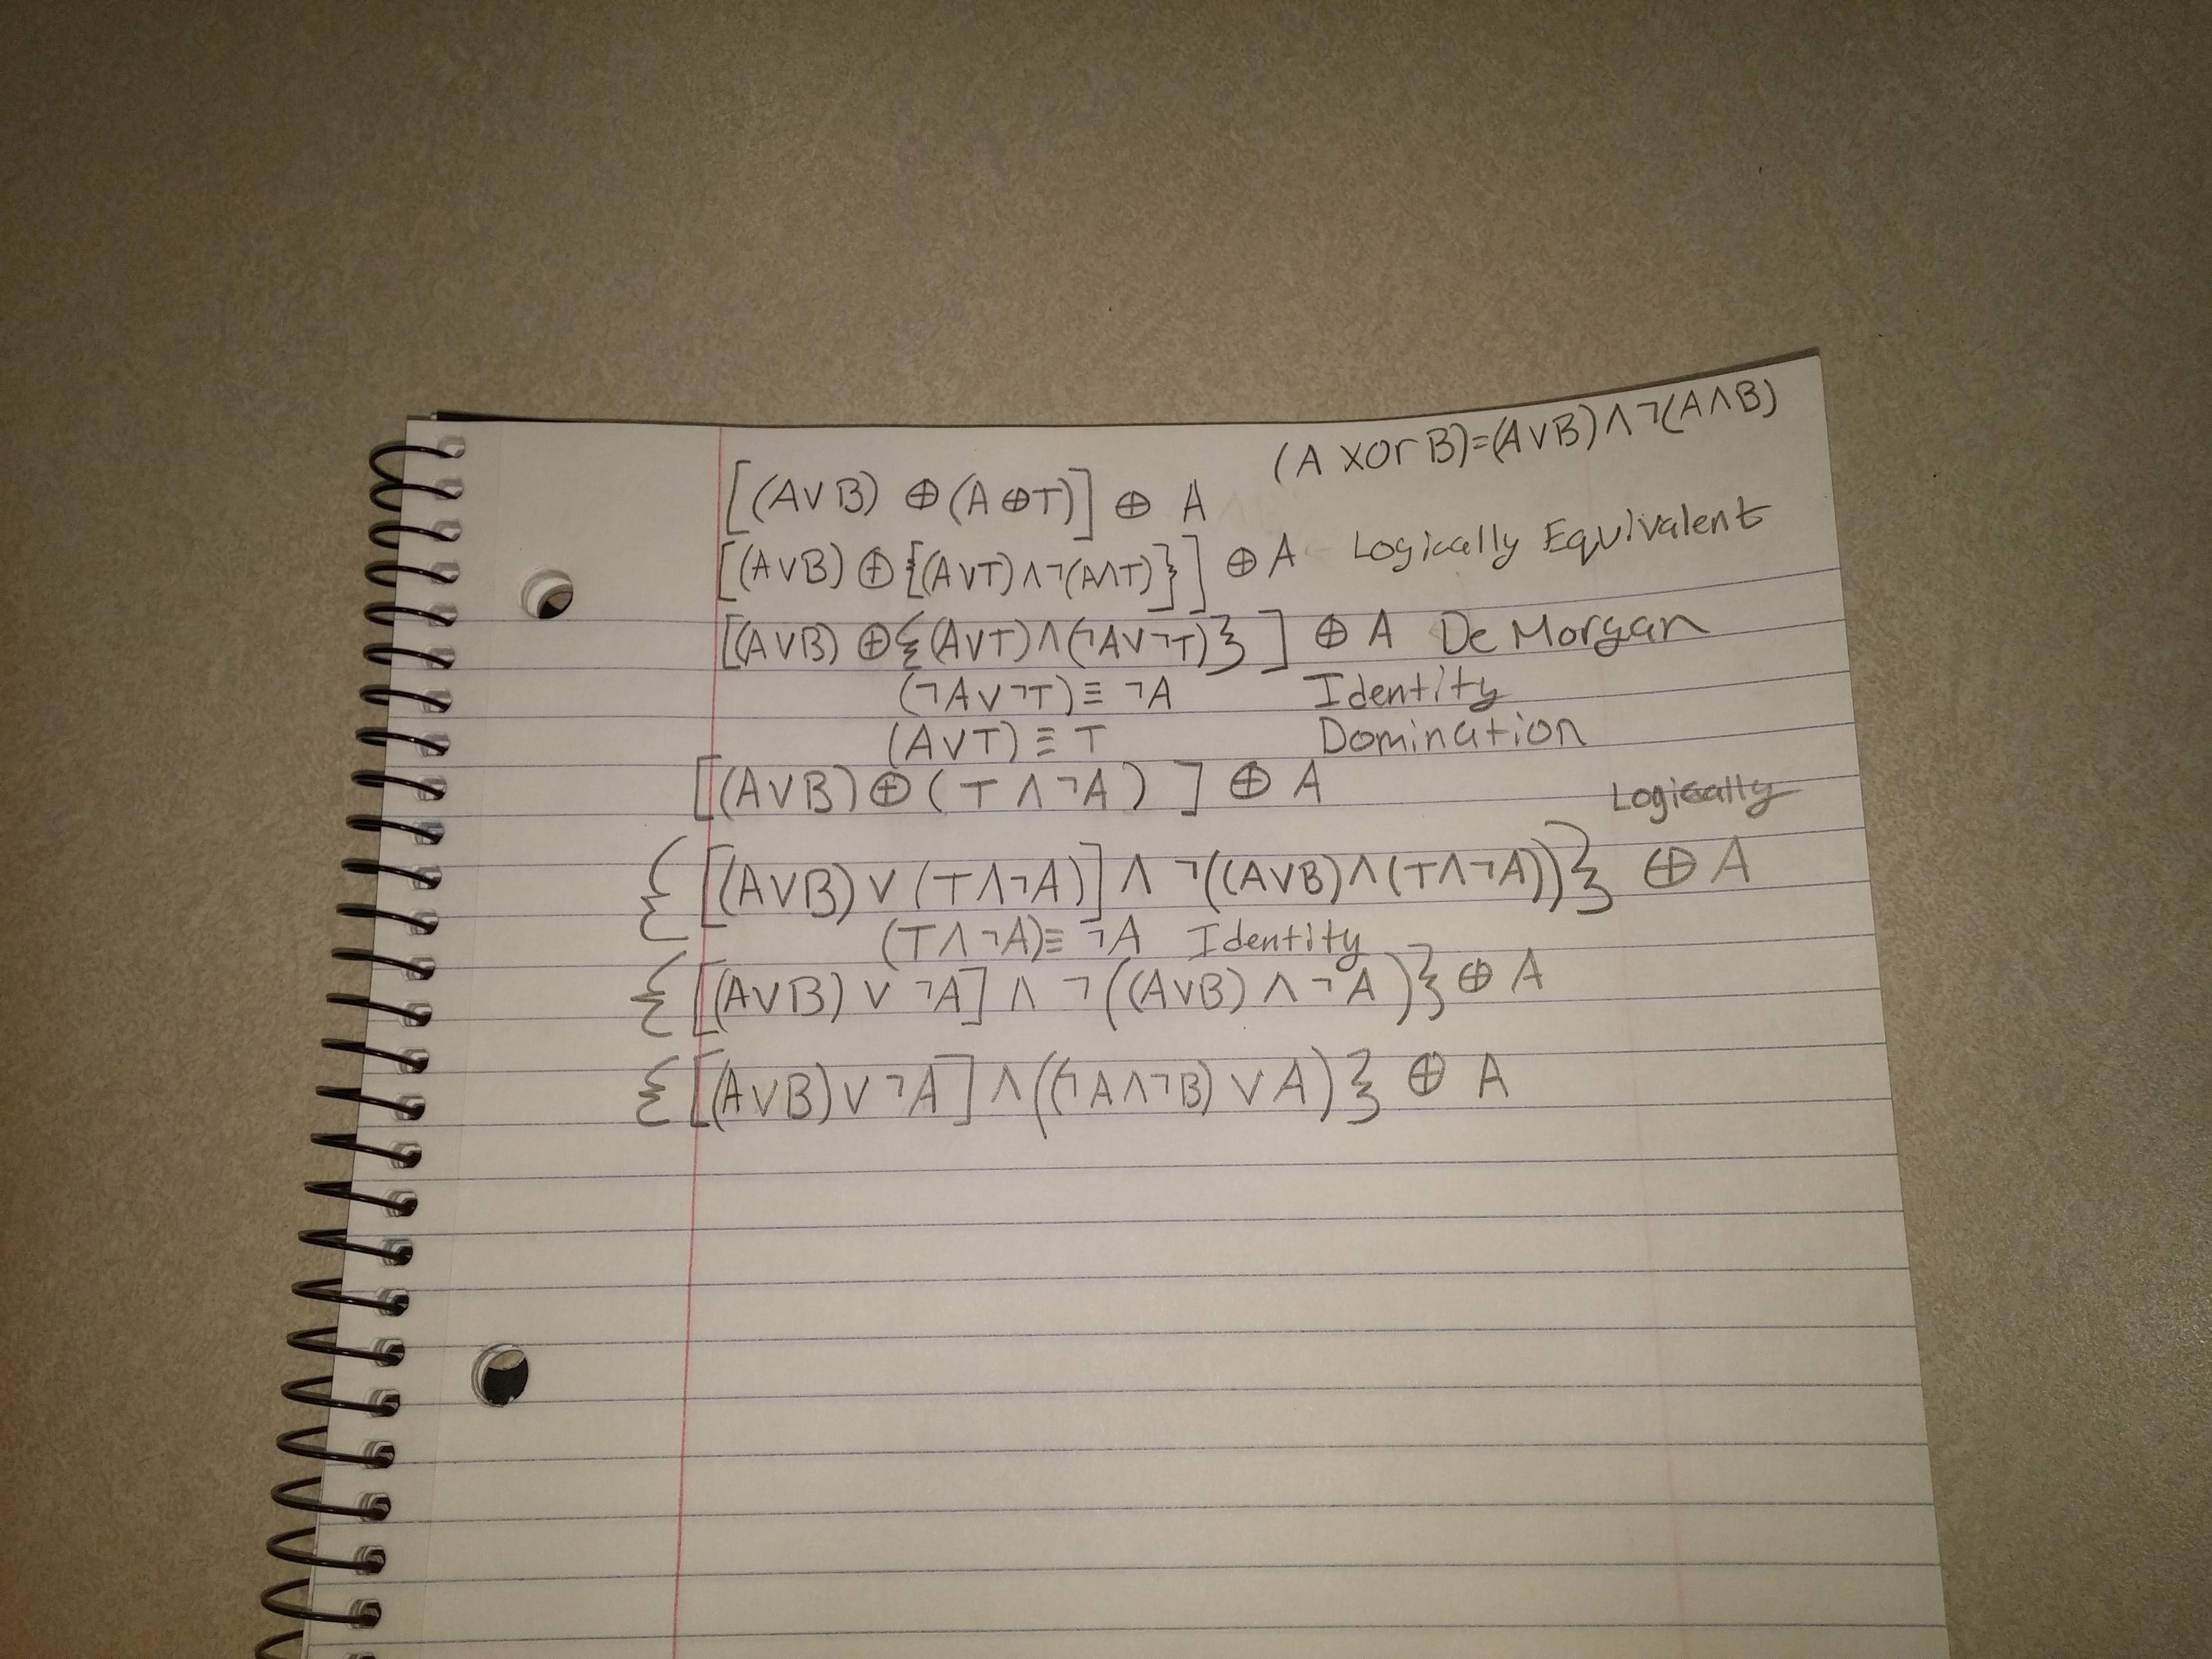 (A xor B)=(A∨B)∧¬(A∧B)
[(A∨B) ⊕ (A⊕T)] ⊕ A
[(A∨B) ⊕ {(A∨T)∧¬(A∧T)}] ⊕ A Logically Equivalent
[(A∨B) ⊕ {(A∨T)∧(¬A∨¬T)} ] ⊕ A De Morgan
(¬A∨¬T) ≡ ¬A Identity
(A∨T) ≡ T Domination
[(A∨B) ⊕ ( T ∧ ¬A ) ] ⊕ A
Logically
{ [(A∨B) ∨ (T∧¬A)] ∧ ¬((A∨B)∧(T∧¬A))} ⊕ A
(T∧¬A) ≡ ¬A Identity
{ [(A∨B) ∨ ¬A] ∧ ¬((A∨B) ∧ ¬A)} ⊕ A
{ [(A∨B) ∨ ¬A] ∧ ((¬A∧¬B) ∨ A)} ⊕ A